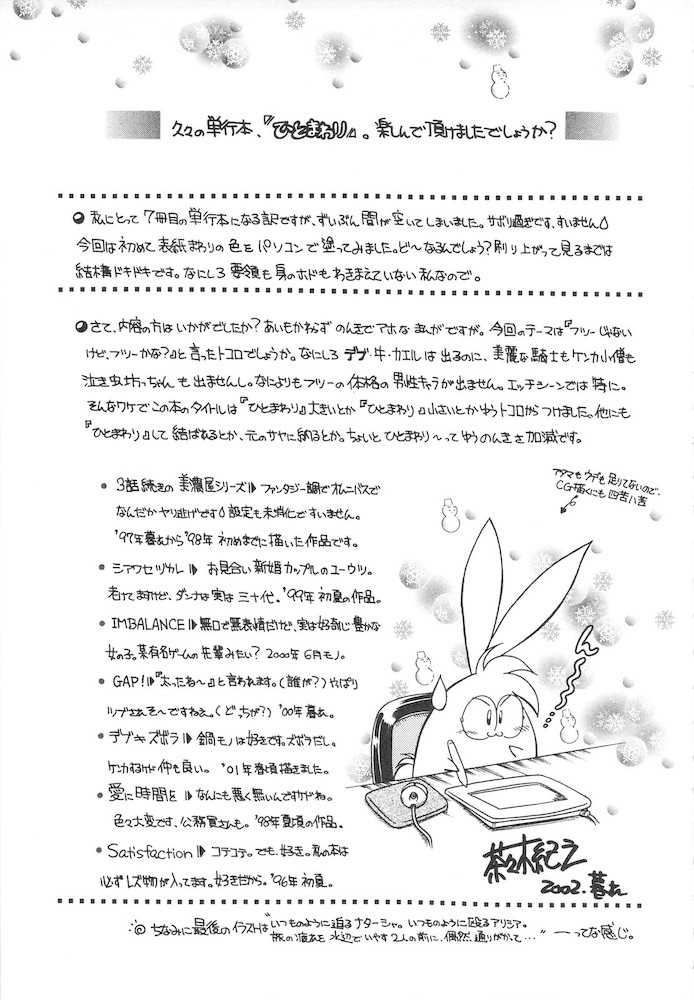 久々の単行本、『ひとまわり』。楽しんで頂けましたでしょうか?
私にとって7冊目の単行本になる訳ですが、ずいぶん間が空いてしまいました。サボり過ぎです、すいません
今回は初めて表紙まわりの色をパソコンで塗ってみました。ど〜なるんでしょう?刷り上がって見るまでは
結構ドキドキです。なにしろ要領も身のホドもわきまえていない私なので。
さて、内容の方はいかがでしたか?あいもかわらずのんきでアホなまんがですが。今回のテーマは『フツーじゃない
けど、フツーかな?』と言ったトコロでしょうか。なにしろデブ・牛・カエルは出るのに、美麗な騎士もケンカ小僧も
泣き虫坊っちゃんも出ませんし。なによりもフツーの体格の男性キャラが出ません。エッチシーンでは特に。
そんなワケでこの本のタイトルは『ひとまわり』大きいとか『ひとまわり』小さいとかゆうトコロからつけました。他にも
『ひとまわり』して結ばれるとか、元のサヤに納るとか。ちょいとひとまわり〜ってゆうのんきな加減です。
アタマもウデも足りてないので、
CG描くにも四苦八苦
3話続きの美濃屋シリーズ ファンタジー調でオムニバスで
なんだかヤリ逃げです 設定も未消化ですいません。
'97年暮れから'98年初めまでに描いた作品です。
シアワセヅカレ お見合い新婚カップルのユーウツ。
老けてますけど、ダンナは実は三十代。'99年初夏の作品。
IMBALANCE 無口で無表情だけど、実は好奇心豊かな
女の子。某有名ゲームの先輩みたい?2000年6月モノ。
GAP! 『太ったね〜』と言われます。(誰が?)やっぱり
ツブされそ〜ですねえ。(どっちが?)'00年暮れ。
デブキズボラ 鍋モノは好きです。ズボラだし。
ケンカするけど仲も良い。'01年春頃描きました。
愛に時間を なんにも悪く無いんですけどね。
色々大変です、公務員さんも。'98年夏頃の作品。
Satisfaction コテコテ。でも、好き。私の本は
必ずレズ物が入ってます。好きだから。'96年初夏。
ん〜〜…
茶々木紀之
2002.暮れ
ちなみに最後のイラストは"いつものように迫るナターシャ。いつものように殴るアリシア。
旅の疲れを水辺でいやす2人の前に、偶然通りがかって…"ーってな感じ。